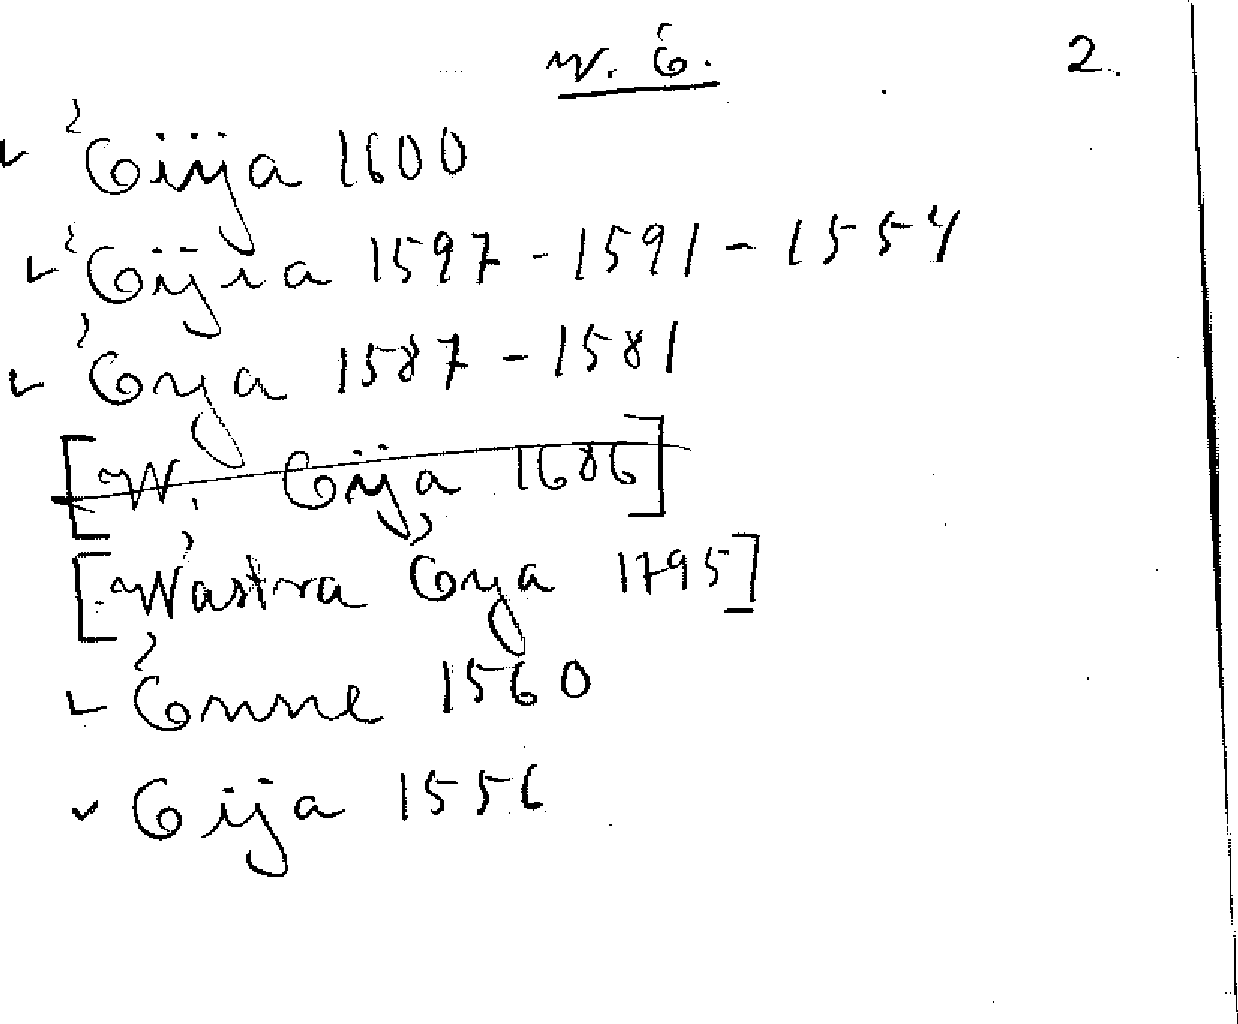 W. Ö. 2.
Öiija 1600
Öijia 1597 - 1591 - 1554
Öya 1587 - 1581
[W. Oija 1686]
[Wästra Öya 1795]
Önne 1560
Oija 1556